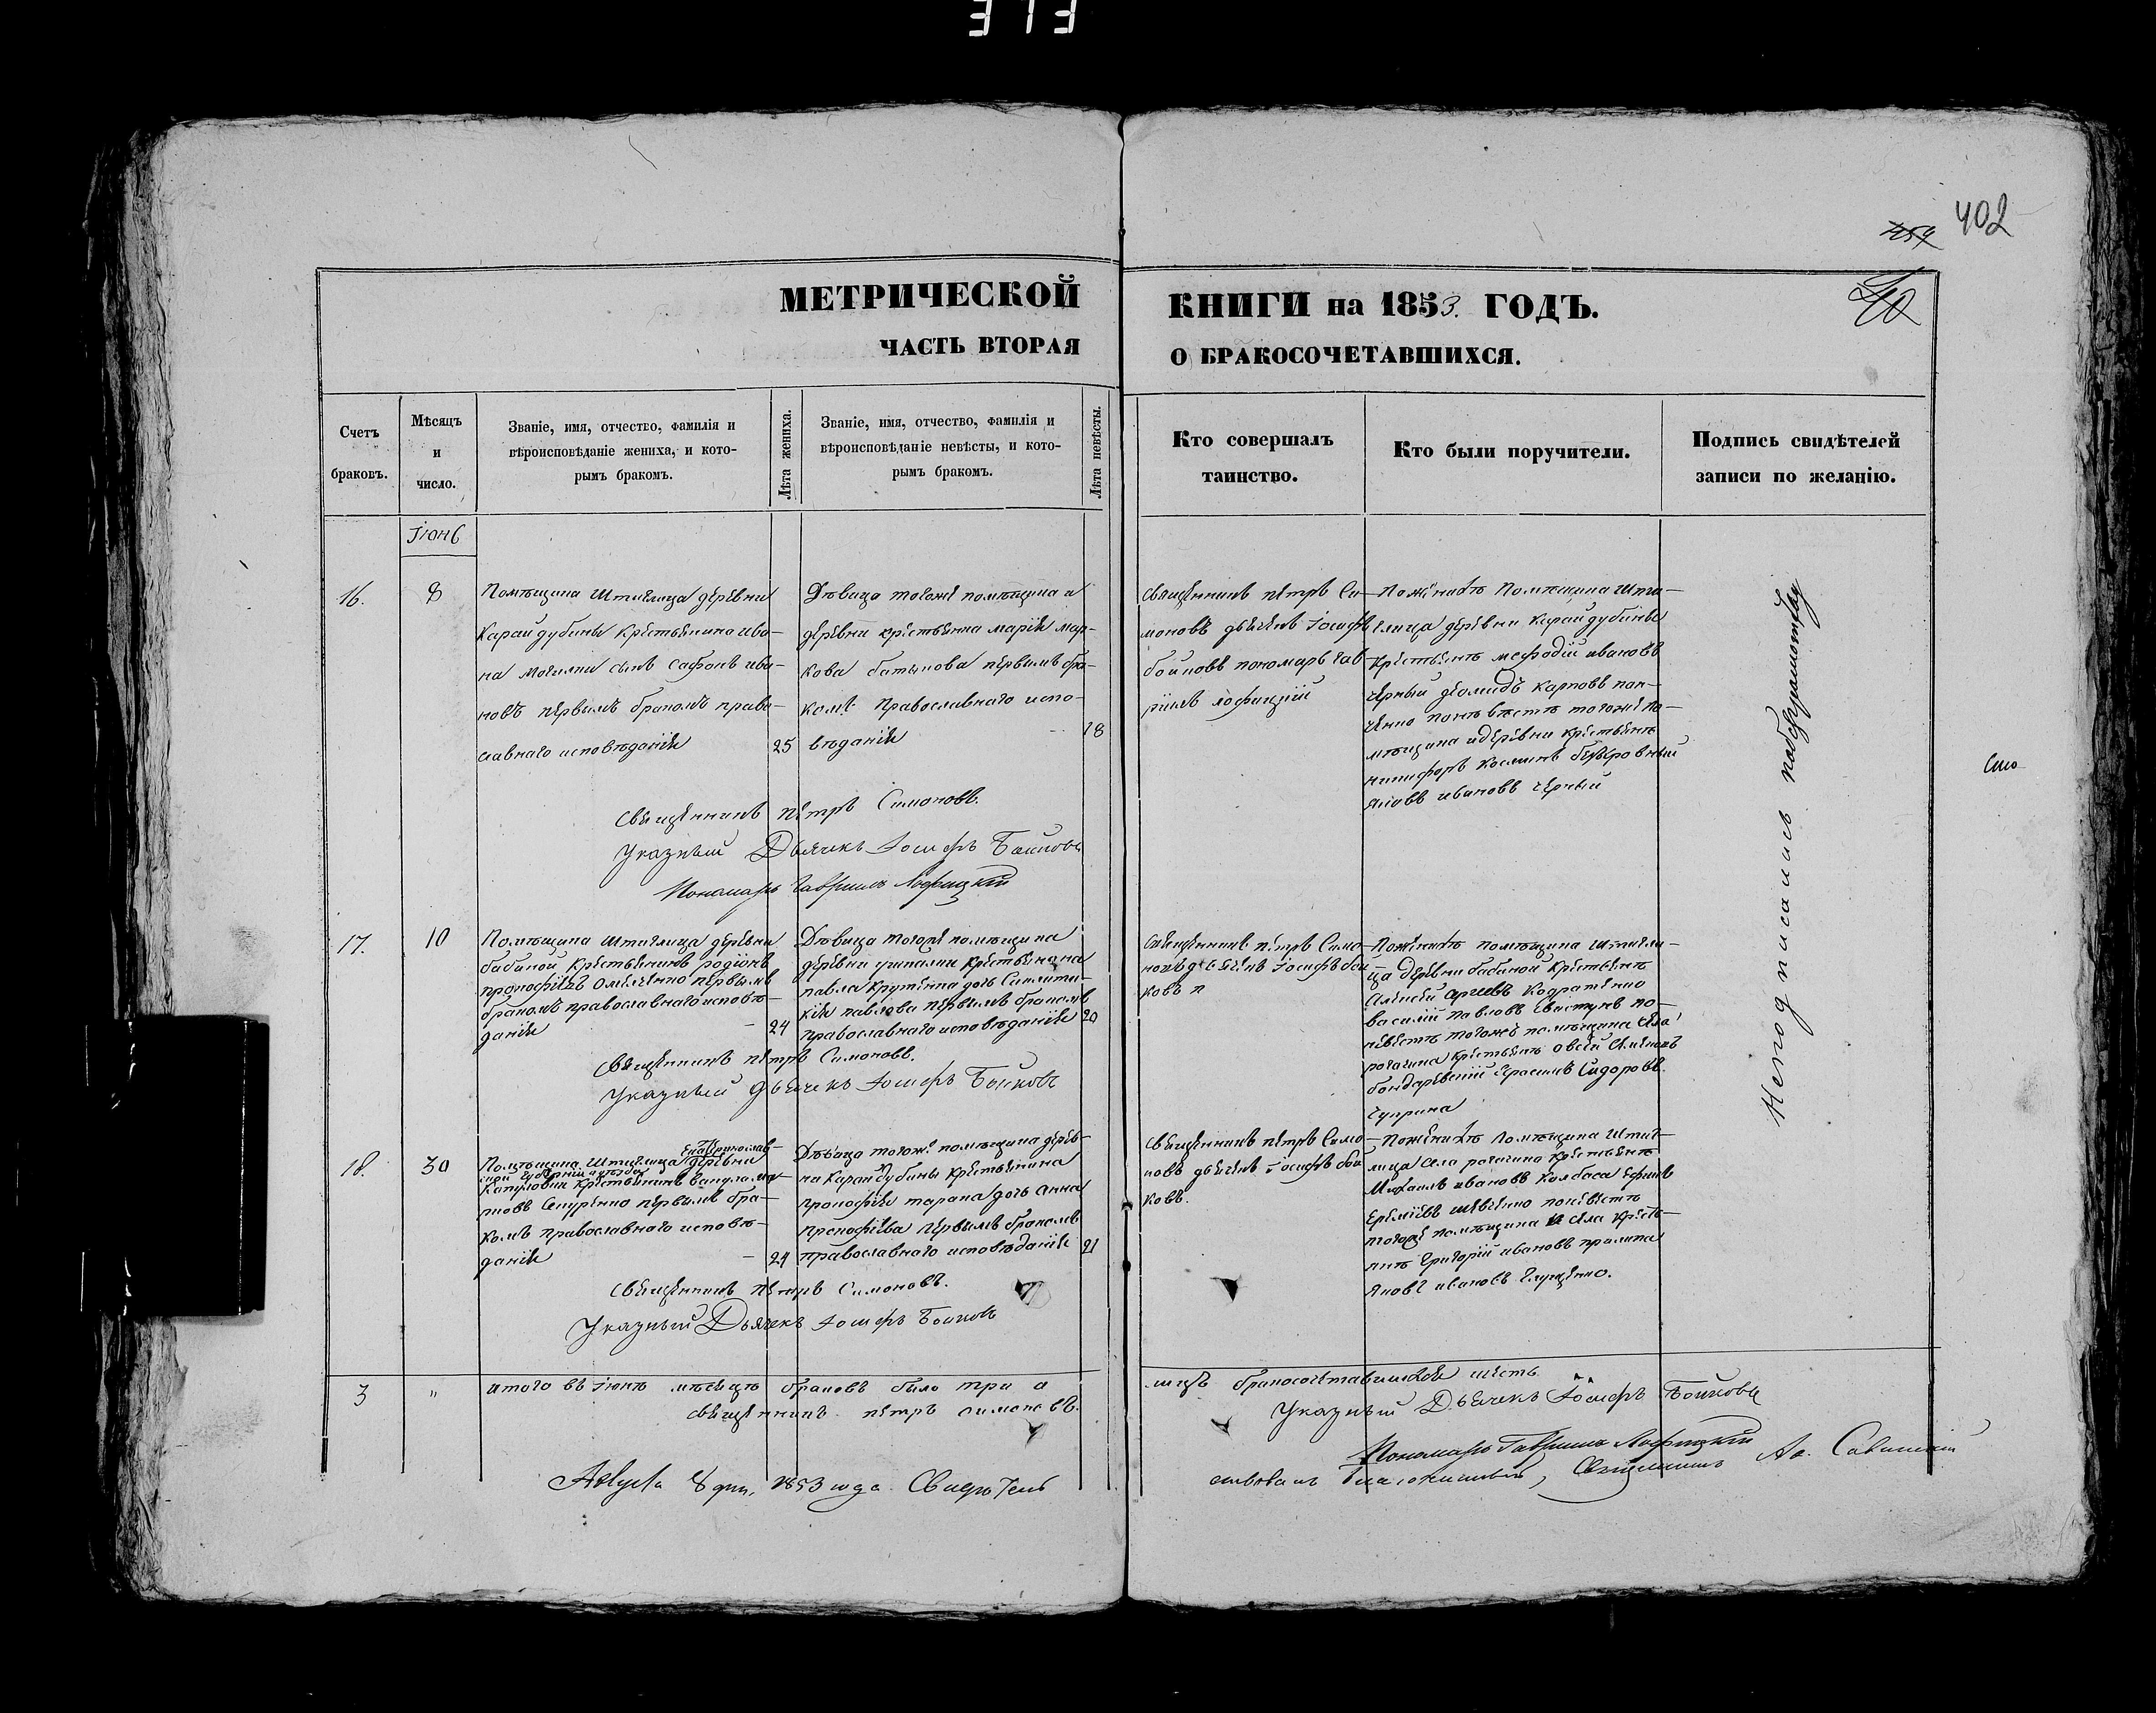 373
402
1259
40
МЕТРИЧЕСКОЙ
КНИГИ на 1853. ГОДЪ.
ЧАСТЬ ВТОРАЯ
О БРАКОСОЧЕТАВШИХСЯ.
Счетъ
браковъ.
Мѣсяцъ
и
число.
Званіе, имя, отчество, фамилія и
вѣроисповѣданіе жениха, и кото-
рымъ бракомъ.
Лѣта жениха.
Званіе, имя, отчество, фамилія и
вѣроисповѣданіе невѣсты, и кото-
рымъ бракомъ.
Лѣта невѣсты.
Кто совершалъ
таинство.
Кто были поручители.
Подпись свидѣтелей
записи по желанію.
Іюнь
16.
8
Помѣщика Штиглица деревни
Карай дубины крестьянина ива-
на могилки сынъ Сафонъ ива-
новъ первымъ бракомъ право-
славнаго исповѣданія
25
Дѣвица тогоже помѣщика и
деревни крестьянка марія мар-
кова первымъ бра-
комъ православнаго испо-
вѣданія
18
Священникъ петръ Си-
моновъ дьячекъ іосифъ
бойковъ пономарь гав-
риилъ лофицкій
По женихѣ Помѣщика Шти-
глица деревни Карайдубины
крестьяне мефодій ивановъ
черный деомидъ карповъ
по невѣстѣ тогоже по-
мѣщика и деревни крестьяне
никифоръ косминъ
яковъ ивановъ черный
Священникъ петръ Симоновъ.
Указный Дьячекъ Іосифъ Бойковъ
Пономарь Гавриилъ Лофицкій
17.
10
Помѣщика Штиглица деревни
бабиной крестьянинъ родіонъ
прокофіевъ омельченко первымъ
бракомъ православнаго исповѣ-
данія
24
Дѣвица тогоже помѣщика
деревни ушкалки крестьянина
павла крутенка дочь
павлова первымъ бракомъ
православнаго исповѣданія
20
Священникъ петръ Симо-
новъ дьячекъ іосифъ бой-
ковъ
По женихѣ помѣщика штигли-
ца деревни бабиной крестьяне
Алексѣй
василій павловъ свистунъ по
невѣстѣ тогоже помѣщика села
рогачика крестьяне овсѣй
бондаревскій герасимъ Сидоровъ
чуприна
Священникъ петръ Симоновъ.
Указный Дьячекъ Іосифъ Бойковъ
18.
30
Екатеринослав-
Помѣщика Штиглица деревни
ской губерніи и уѣзда
Капуловки крестьянинъ вакула
первымъ бра-
комъ православнаго исповѣ-
данія
24
Дѣвица тогоже помѣщика дерев-
ни Карай дубины крестьянина
прокофія тарана дочь анна
прокофіева первымъ бракомъ
православнаго исповѣданія
21
Священникъ петръ Симо-
новъ дьячекъ іосифъ бой
ковъ.
По женихѣ помѣщика Штиг-
лица села рогачика крестьяне
Михаилъ ивановъ колбаса ефимъ
еремѣевъ шевченко по невѣстѣ
тогоже помѣщика и села кресть-
яне григорій ивановъ
яковъ ивановъ глущенко.
Священникъ петръ Симоновъ.
Указный Дьячекъ Іосифъ Бойковъ
Неподписались побезграмотству
3
"
итого въ іюнѣ мѣсяцѣ браковъ было три а
лицъ бракосочетавшихся шесть
священникъ петръ симоновъ.
Указный Дьячекъ Іосифъ Бойковъ
Пономарь Гавриилъ Лофицкій
Августа 8 дня, 1853 года Свидѣтель
ствовалъ Благочинный, Священникъ Савицкій